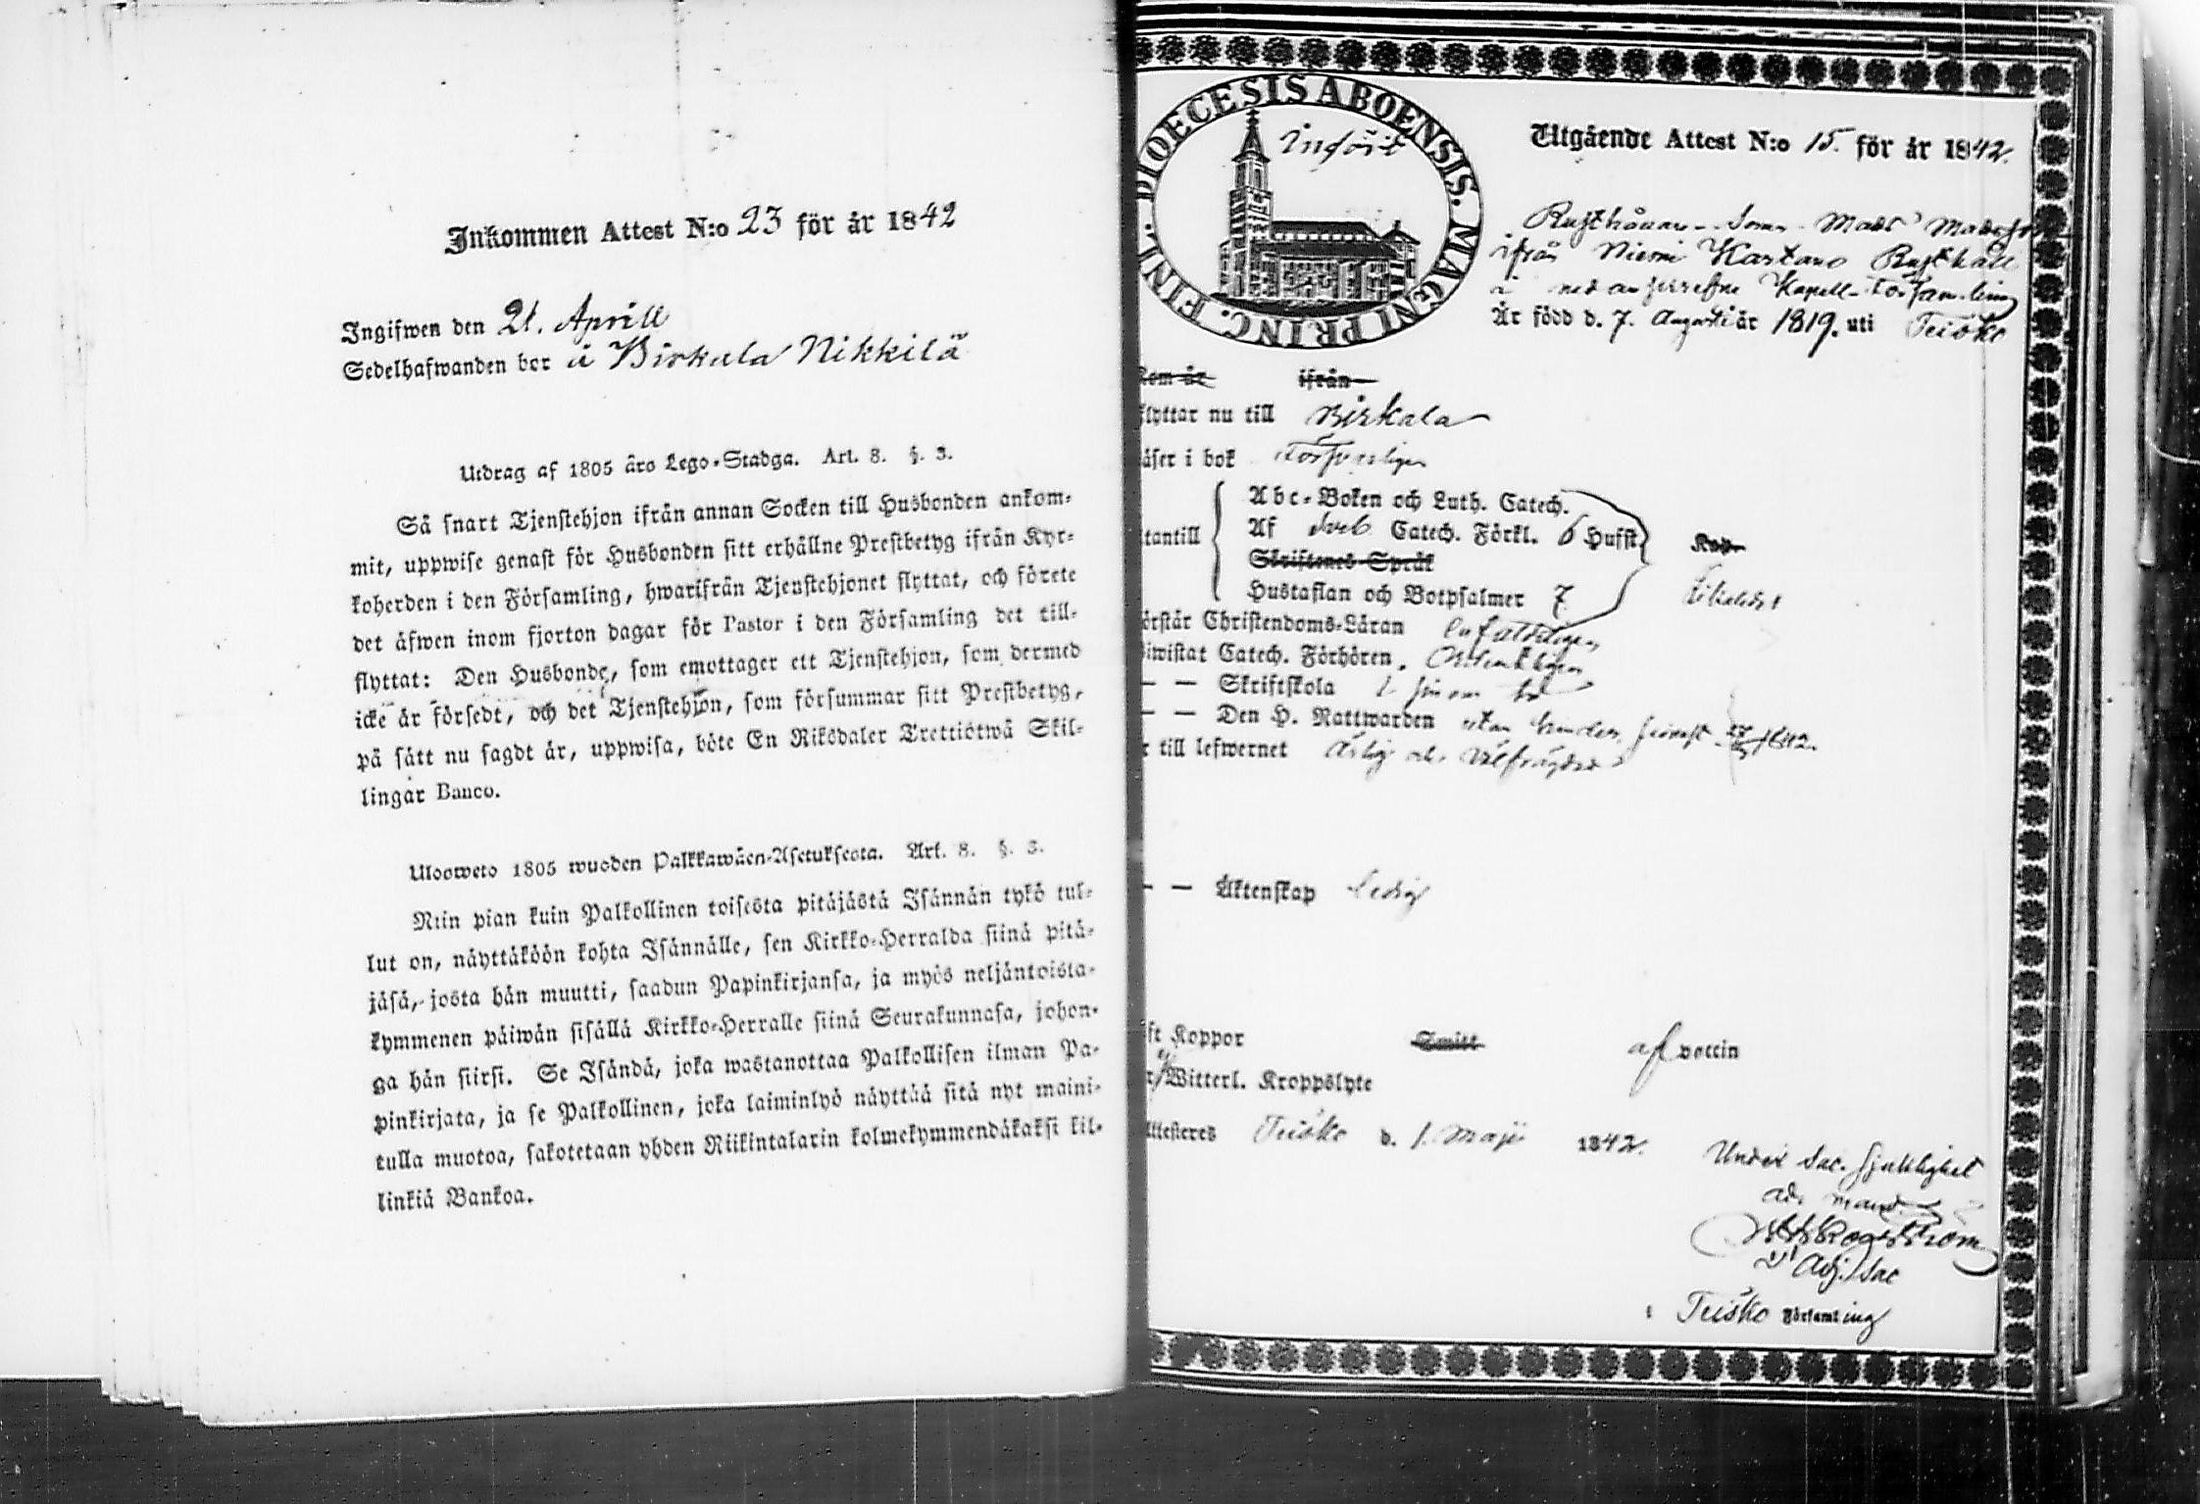 Inkommen Attest N:o 23 för år 1842
Ingifwen den 21. Aprill
Sedelhafwanden bor å Birkala Nikkilä
Utdrag af 1805 års Lego-Stadga. Art. 8. §. 3.
Så snart Tjenstehjon ifrån annan Socken till Husbonden ankom-
mit, uppwise genast för Husbonden sitt erhållne Prestbetyg ifrån Kyr-
koherden i den Församling, hwarifrån Tjenstehjonet flyttat, och förete
det äfwen inom fjorton dagar för Pastor i den Församling det till-
flyttat: Den Husbonde, som emottager ett Tjenstehjon, som dermed
icke är försedt, och det Tjenstehjon, som försummar sitt Prestbetyg,
på sätt nu sagdt är, uppwisa, böte En Riksdaler Trettiotwå Skil-
lingar Banco.
Ulosweto 1805 wuoden Palkkawäen-Asetuksesta. Art. 8. §. 3.
Niin pian kuin Palkollinen toisesta pitäjästä Isännän tykö tul-
lut on, näyttäköön kohta Isännälle, sen Kirkko-Herralda siinä pitä-
jäsä, josta hän muutti, saadun Papinkirjansa, ja myös neljäntoista-
kymmenen päiwän sisällä Kirkko-Herralle siinä Seurakunnasa, johon-
ga hän siirsi. Se Isändä, joka wastanottaa Palkollisen ilman Pa-
pinkirjata, ja se Palkollinen, joka laiminlyö näyttää sitä nyt maini-
tulla muotoa, sakotetaan yhden Riikintalarin kolmekymmendäkaksi kil-
linkiä Bankoa.
DIOECESIS ABOENSIS. MAGNI PRINC. FINL.
Infört
Utgående Attest N:o 15. för år 1842.
Rusthållare-Sonen Mats Matsson
ifrån Niemi Kartano Rusthåll
i nedanskrefne Kapell-Församling
Är född d. 7. Augusti år 1819. uti Teisko
Kom år ifrån
flyttar nu till Birkala
läser i bok Försvarligen
Abc-Boken och Luth. Catech.
utantill Af Sveb Catech. Förkl. 6 Hufst.
Skriftenes Språk
Hustaflan och Botpsalmer 7
förstår Christendoms-Läran enfaldeligen
biwistat Catech. Förhören. Ordentligen
— — Skriftskola
— — Den H. Nattwarden utan hinder, senast 1842.
är till lefwernet Ärlig och välfrägdad
— — Äktenskap ledig
haft Koppor Smitt af vaccin
Witterl. Kroppslyte
Attesteres Teisko d. 1. Maji 1842.
Under Sac. sjuklighet
ad. mand.
Adj. Sac
i Teisko Församling